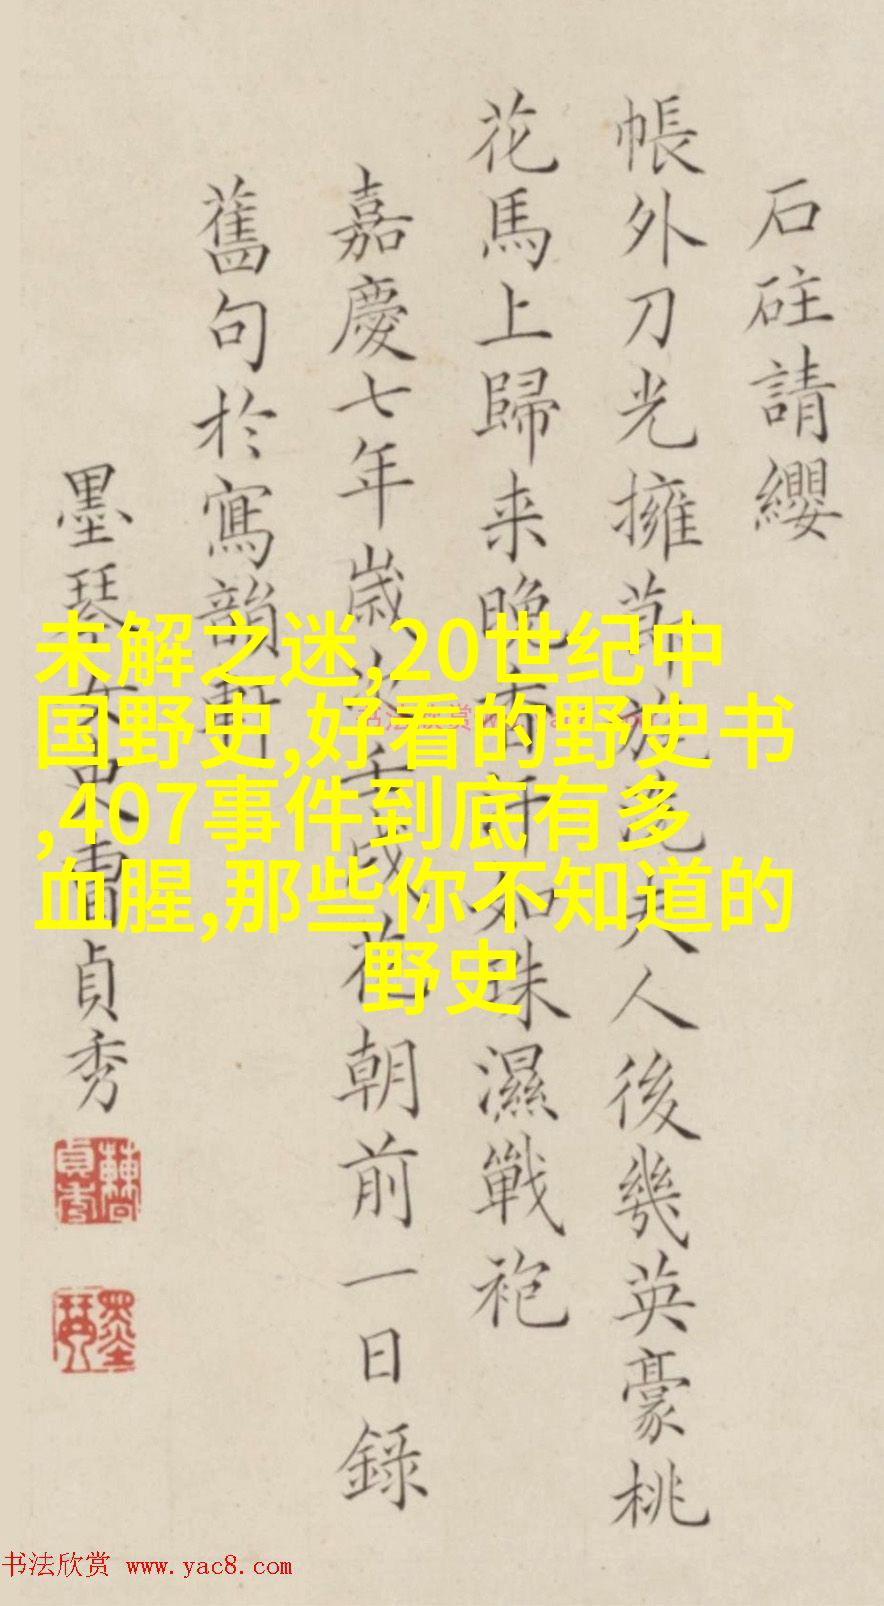 石砫請纓
帳外刀光擁萬旄夫人後幾英豪桃
花馬上歸来晚香汗如珠濕戰袍
嘉慶七年歲次壬戌花朝前一日錄
舊句於寫韻軒
墨琴女史曹貞秀
未解之迷,20世纪中
国野史,好看的野史书
,407事件到底有多
血腥,那些你不知道的
野史
书法欣赏 www.yac8.com